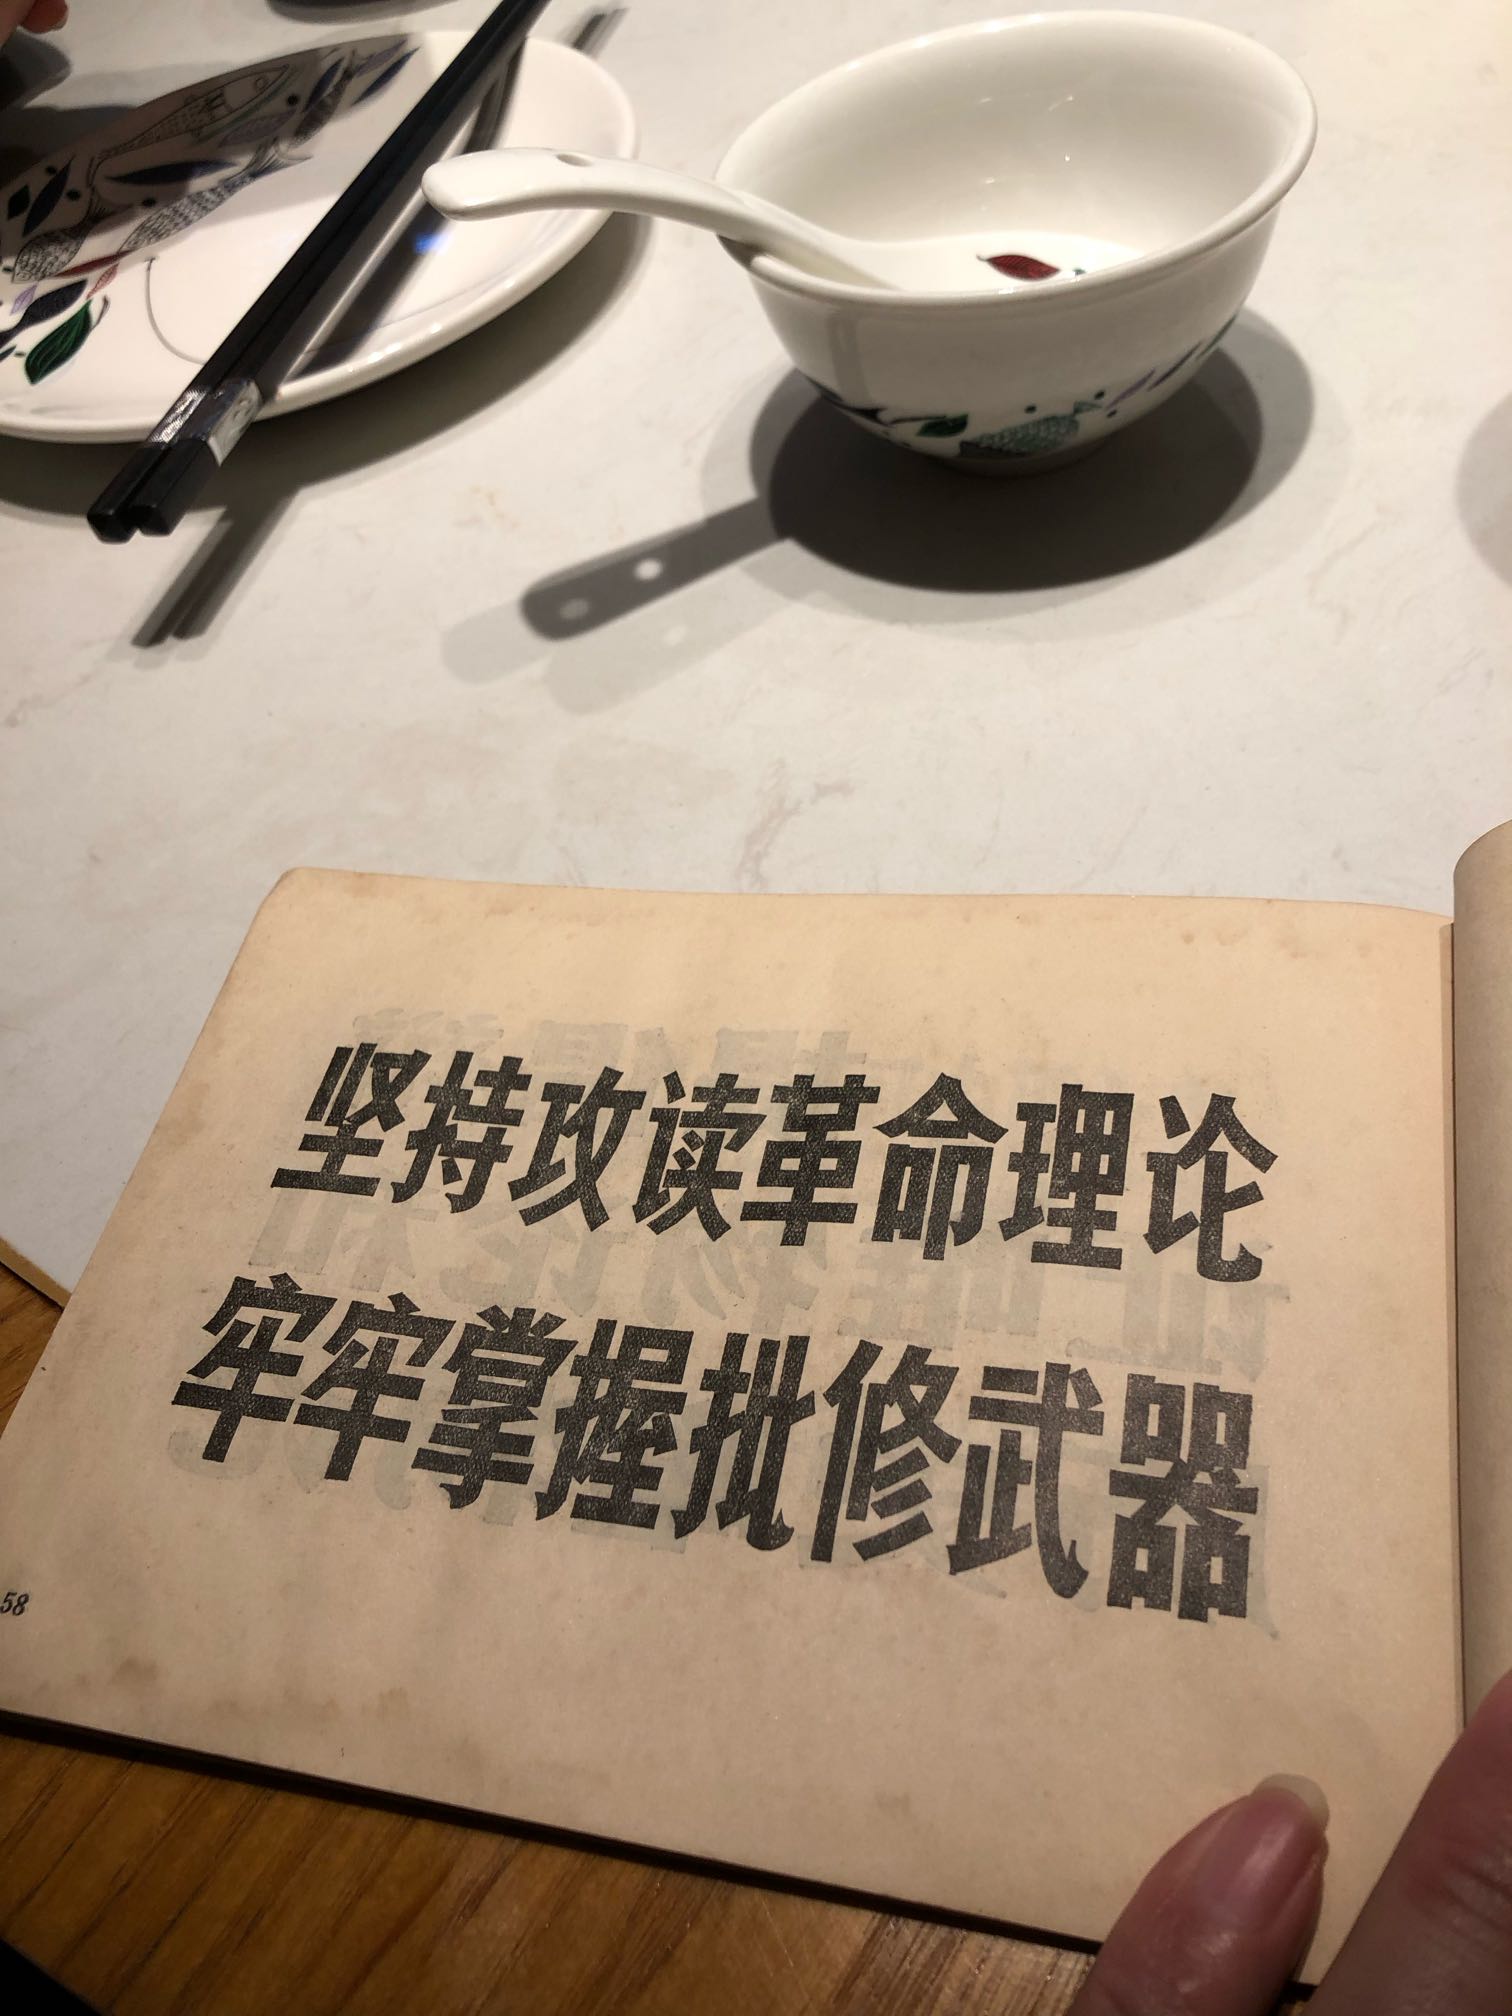 坚持攻读革命理论
牢牢掌握批修武器
58